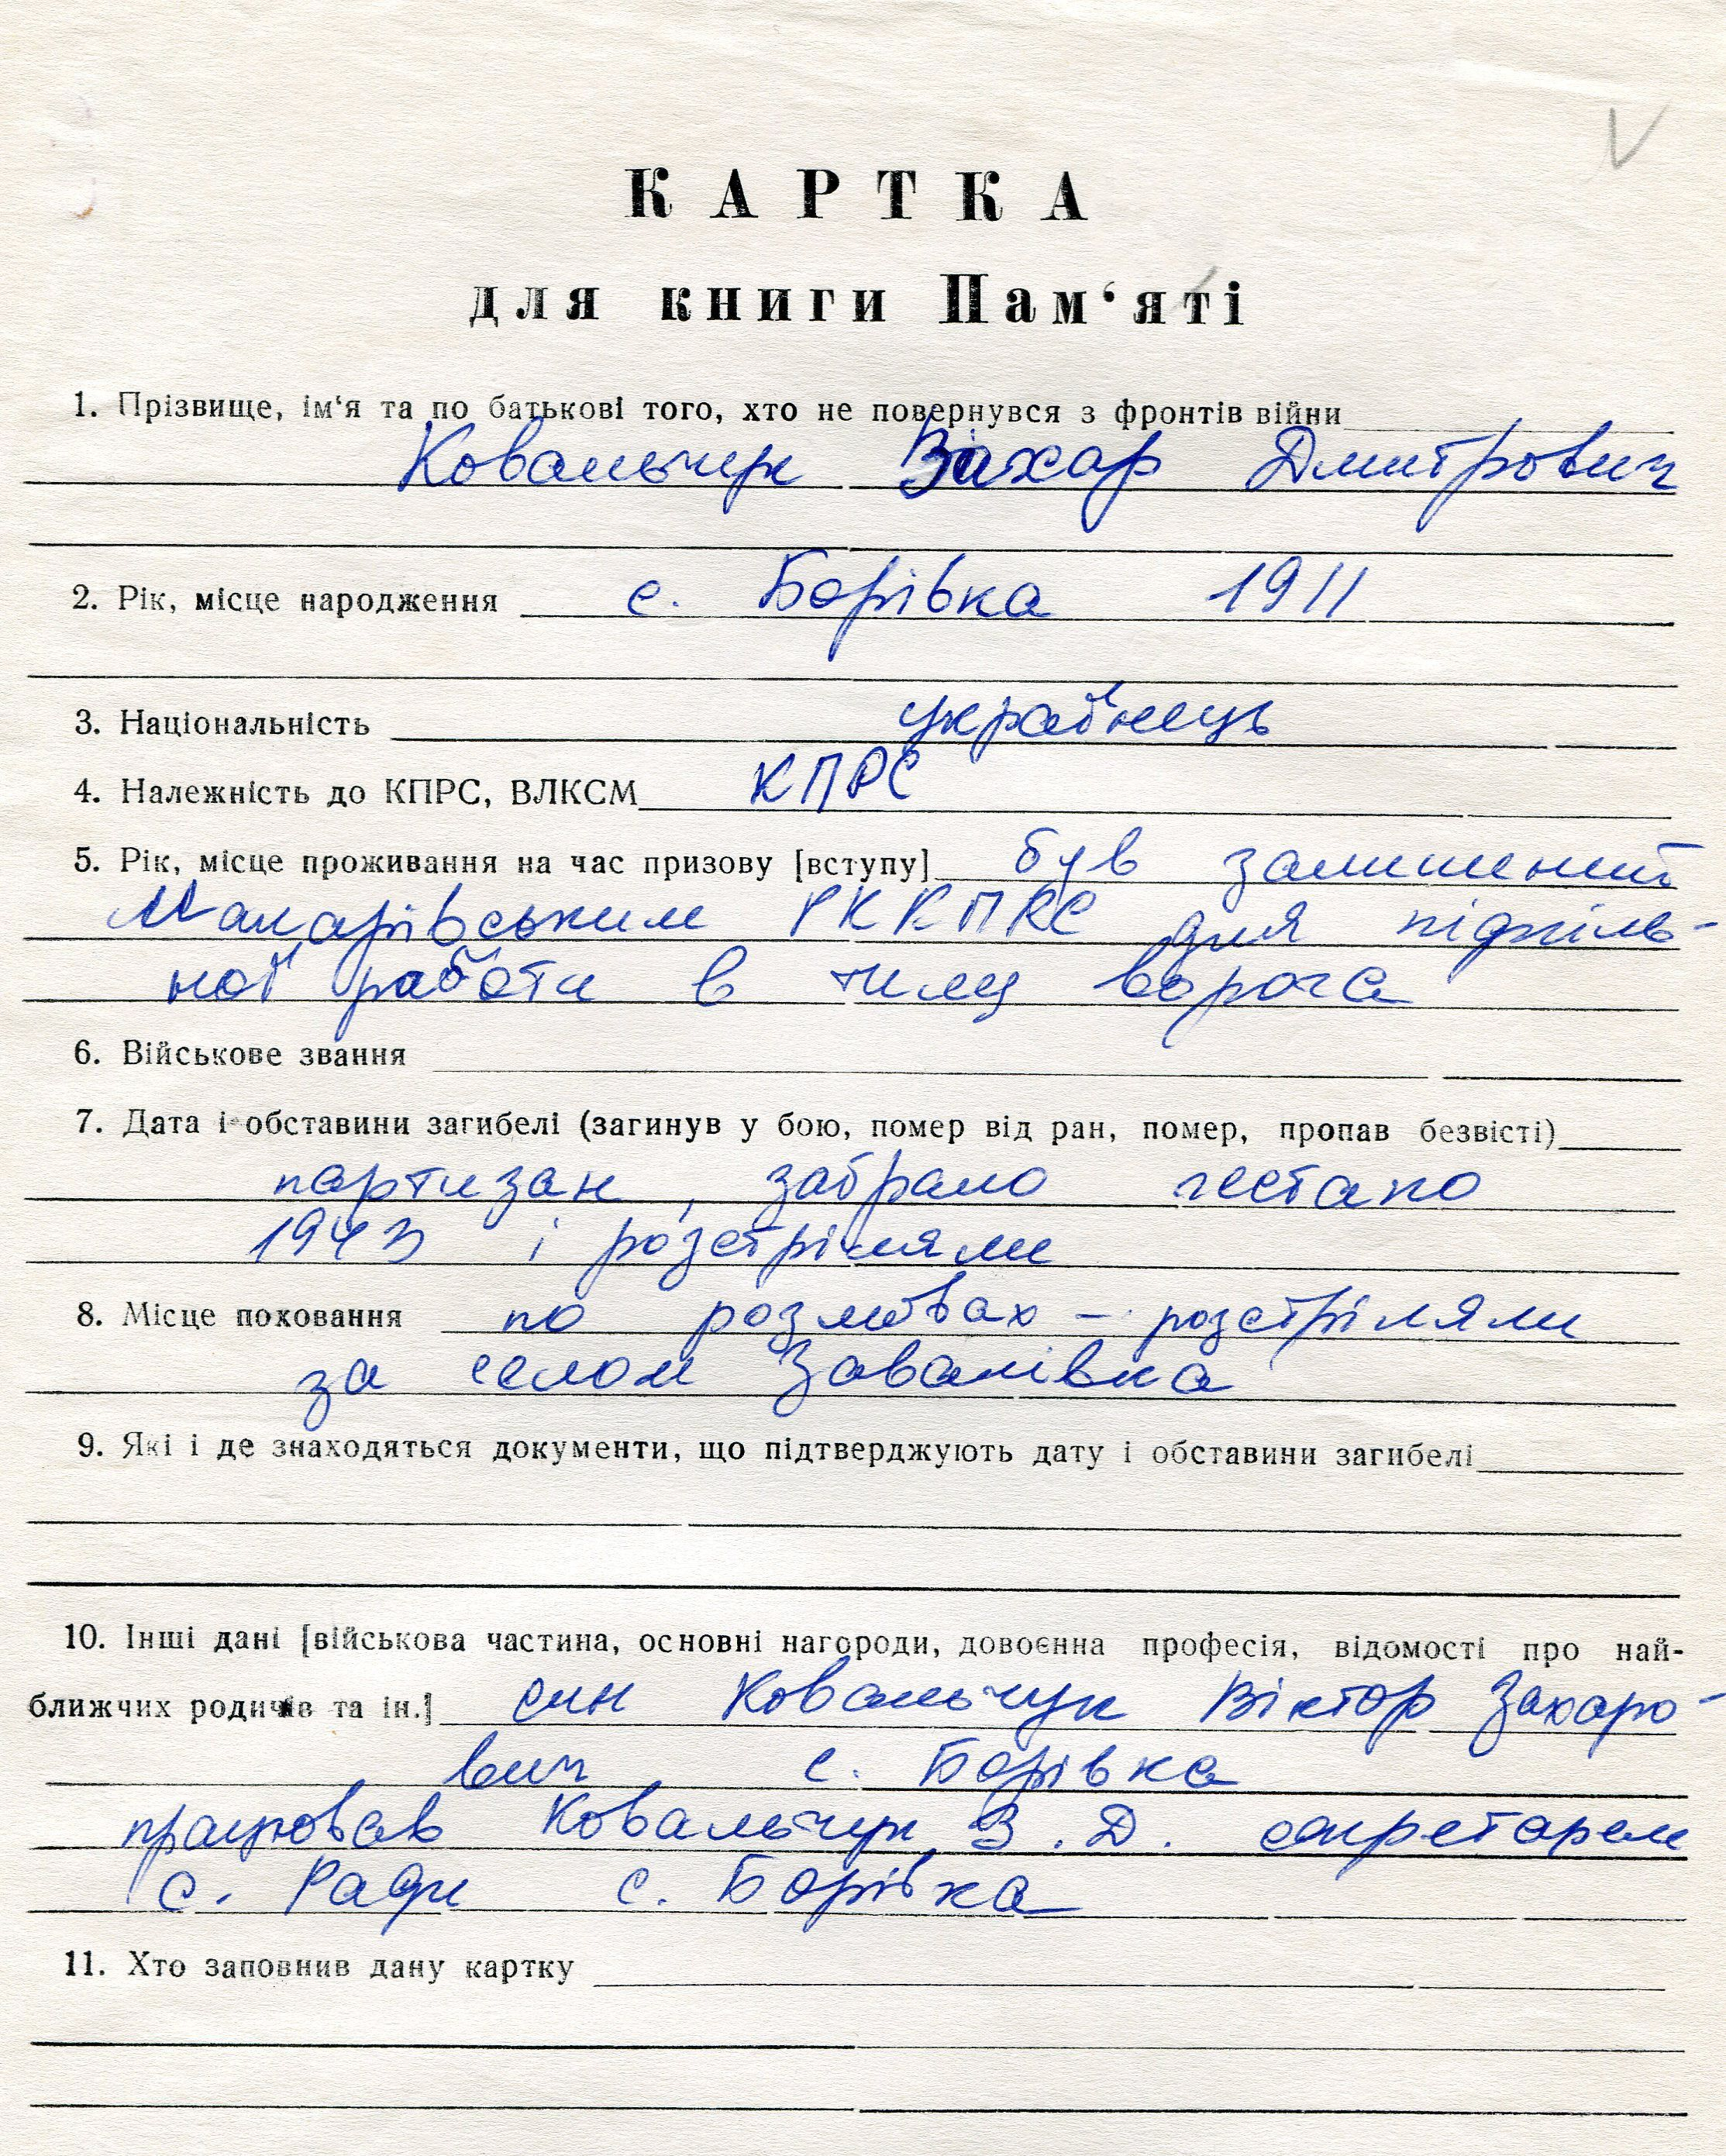 КАРТКА
для книги Пам‘яті
1. Прізвище, ім‘я та по батькові того, хто не повернувся з фронтів війни
Ковальчук Захар Дмитрович
2. Рік, місце народження с. Борівка 1911
3. Національність українець
4. Належність до КПРС, ВЛКСМ КПРС
5. Рік, місце проживання на час призову [вступу] був залишений
Макарівським РККПРС для підпіль-
ної работи в тилу ворога
6. Військове звання
7. Дата і обставини загибелі (загинув у бою, помер від ран, помер, пропав безвісті)
партизан, забрало гестапо
1943 і розстріляли
8. Місце поховання по розмовах – розстріляли
за селом Завалівка
9. Які і де знаходяться документи, що підтверджують дату і обставини загибелі
10. Інші дані [військова частина, основні нагороди, довоєнна професія, відомості про най-
ближчих родичів та ін.] син Ковальчук Віктор Захаро-
вич с. Борівка
працював Ковальчук З. Д. секретарем
с. Ради с. Борівка
11. Хто заповнив дану картку